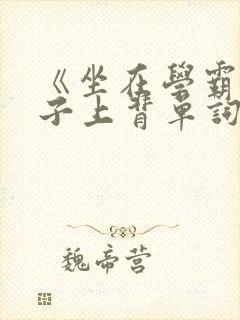 《坐在學霸
子上背單詞
魏帝营